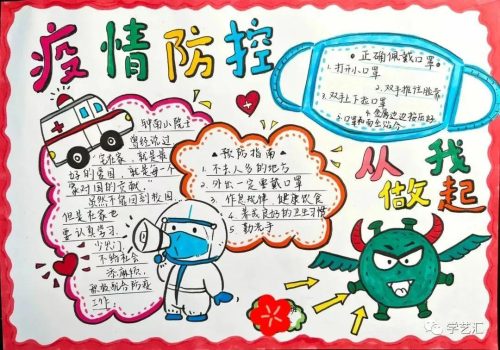 疫情防控
·正确佩戴口罩·
1.打开小口罩
2.双手推住脸靠
3.双手上下拉口罩
4.金属边边按压好
5.口罩和面全贴合
钟南山院士
曾经说过
宅在家,就是最
好的爱国,就是每一个
家对国的贡献。"
虽然不能回到校园
但是在家也
要认真学习
少出门,
不给社会
添麻烦,
积极配合防疫
工作。
★预防指南★
1.不去人多的地方
2.外出一定要戴口罩
3.作息规律 健康饮食
4.养成良好的卫生习惯
5.勤洗手
从我
做起
学艺汇